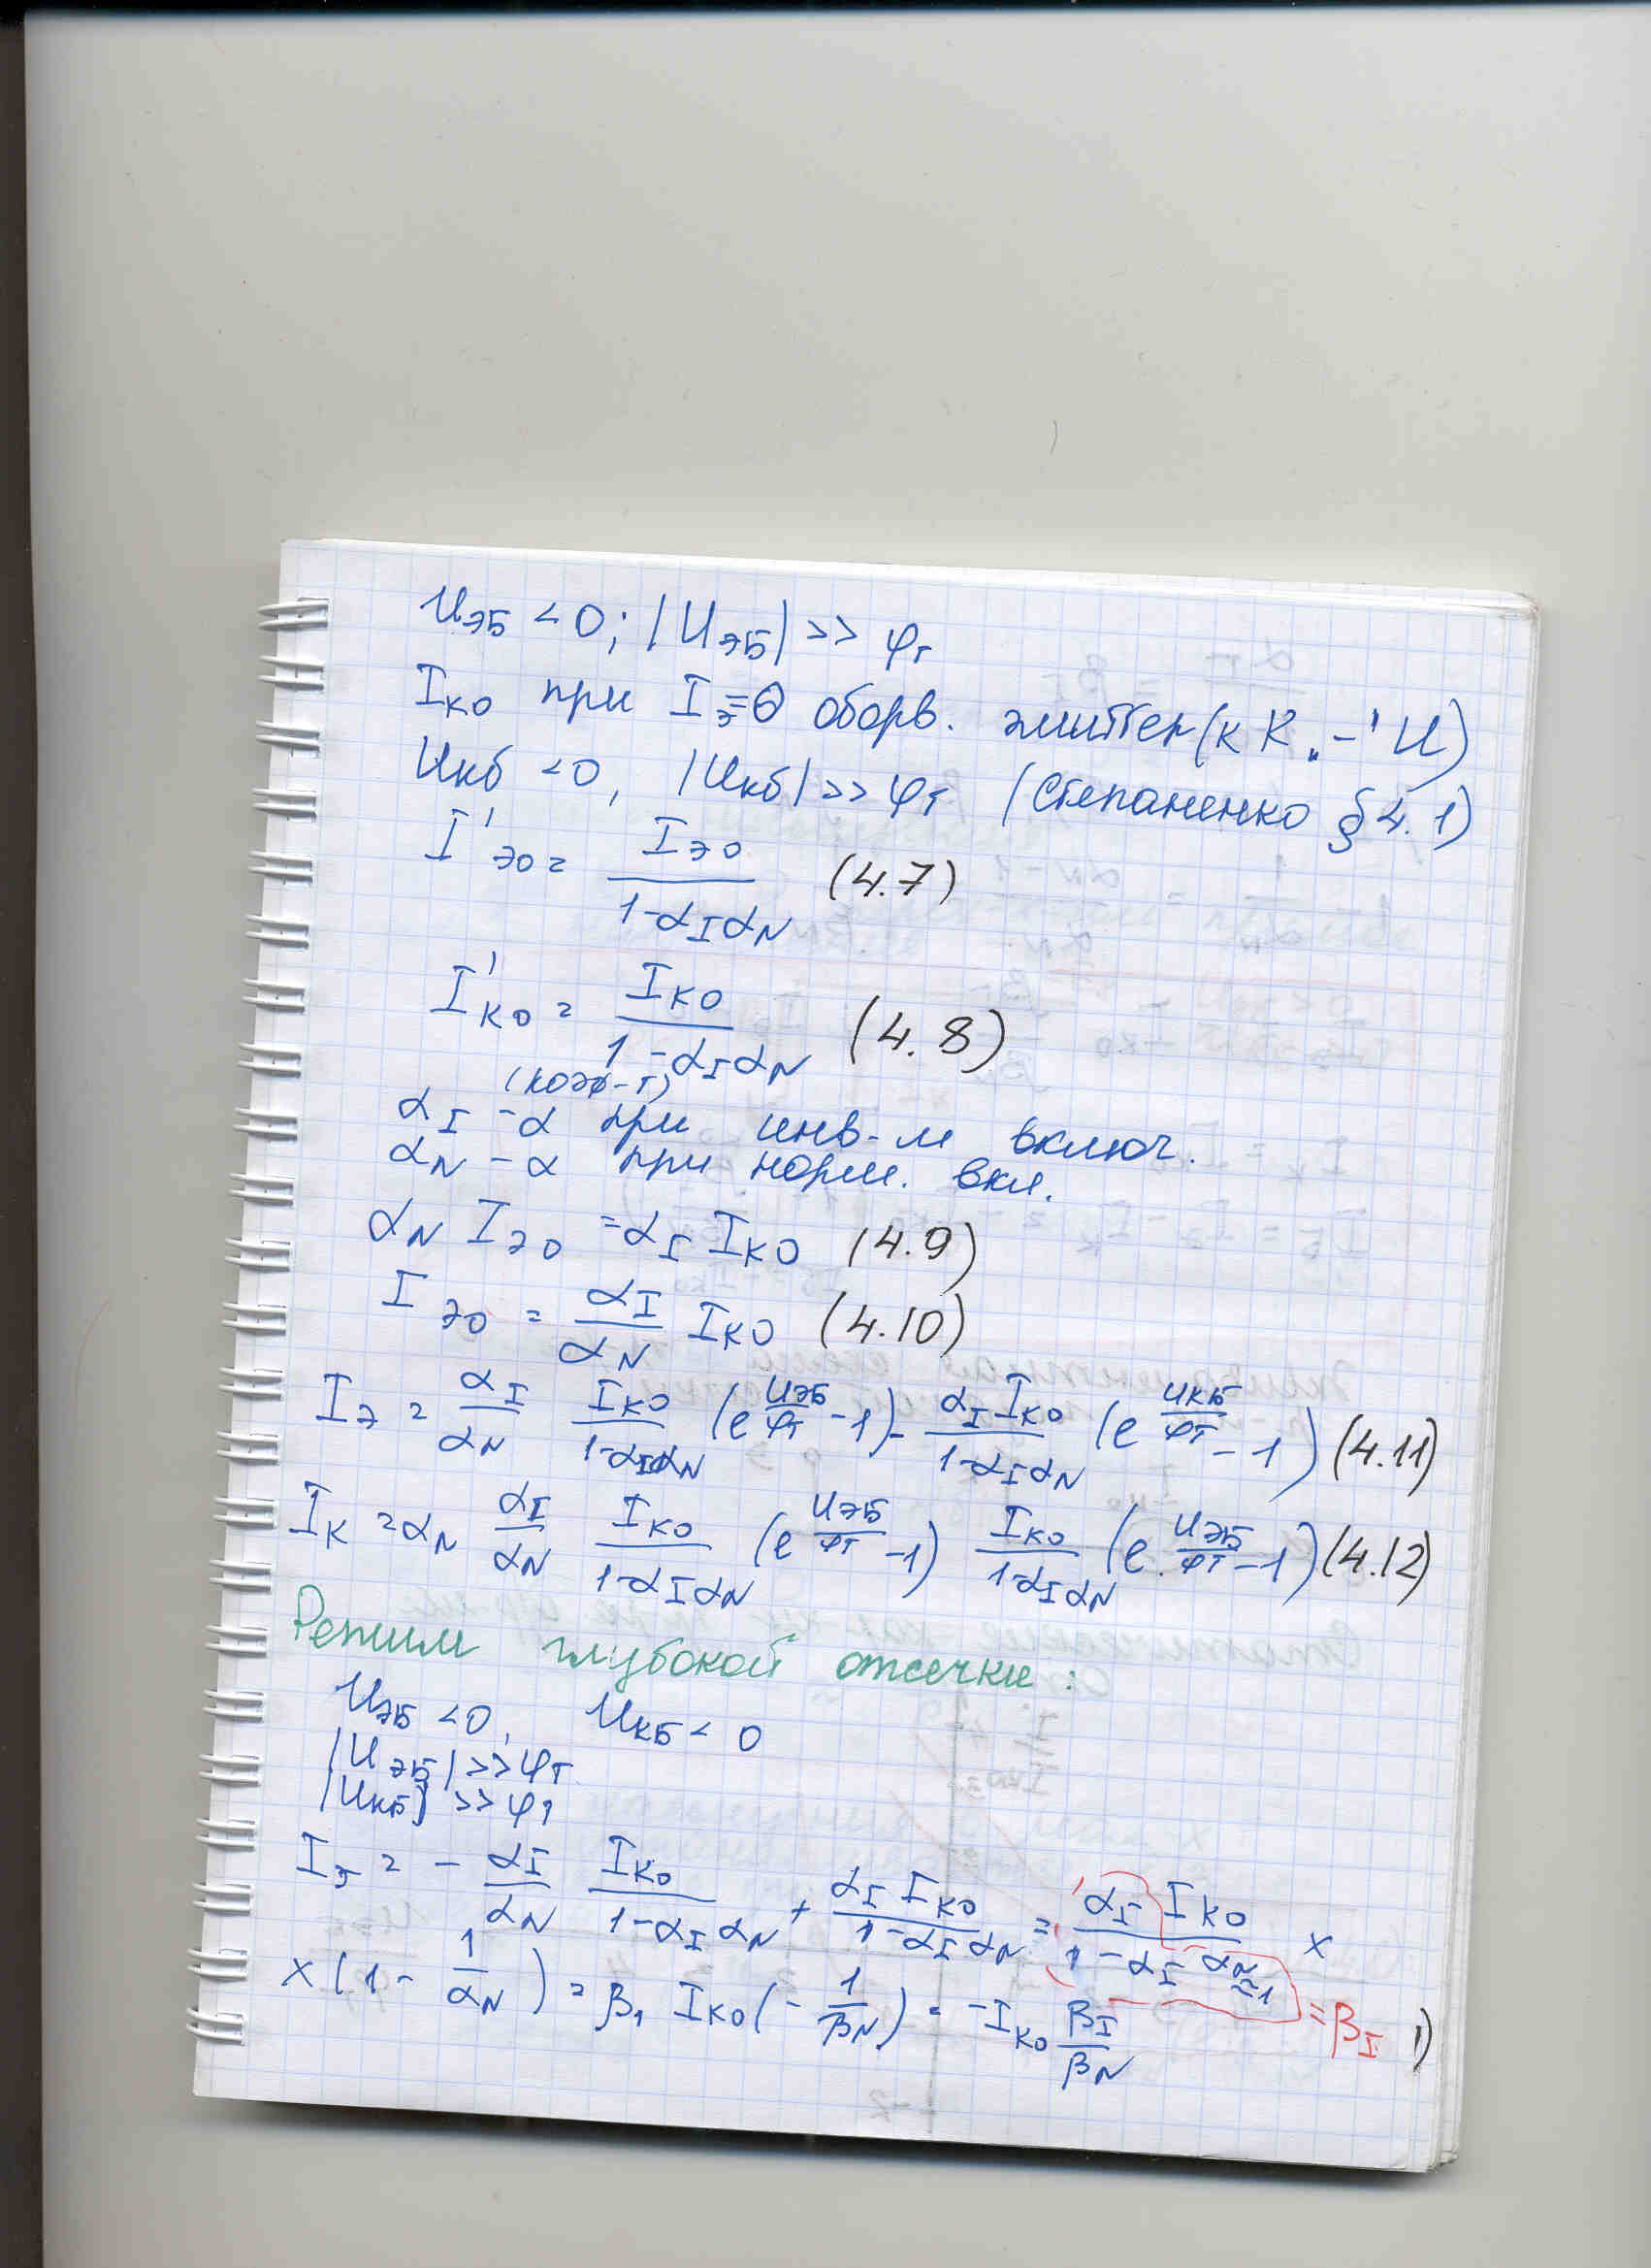 UЭБ < 0; |UЭБ| >> φт
IК0 при IЭ=0 оборв. эмиттер (к К. -' И)
Uкб < 0, |Uкб| >> φт (Степаненко § 4.1)
I'Э0 = IЭ0 / (1-αIαN) (4.7)
I'К0 = IК0 / (1-αIαN) (4.8)
(коэф-т)
αI - α при инв-м включ.
αN - α при норм. вкл.
αN IЭ0 = αI IК0 (4.9)
IЭ0 = αI/αN IК0 (4.10)
IЭ = αI/αN IК0/(1-αIαN) (e^(UЭБ/φт) -1) - αI IК0/(1-αIαN) (e^(UКБ/φт) -1) (4.11)
IК = αN αI/αN IК0/(1-αIαN) (e^(UЭБ/φт) -1) IК0/(1-αIαN) (e^(UЭБ/φт) -1) (4.12)
Режим глубокой отсечки:
UЭБ < 0, UКБ < 0
|UЭБ| >> φт
|UКБ| >> φт
IЭ = - αI/αN IК0/(1-αIαN) + αI IК0/(1-αIαN) = αI IК0/(1-αI αN≈1) ×
× (1 - 1/αN) = β1 IК0 (- 1/βN) = -IК0 βI/βN = βI 1)